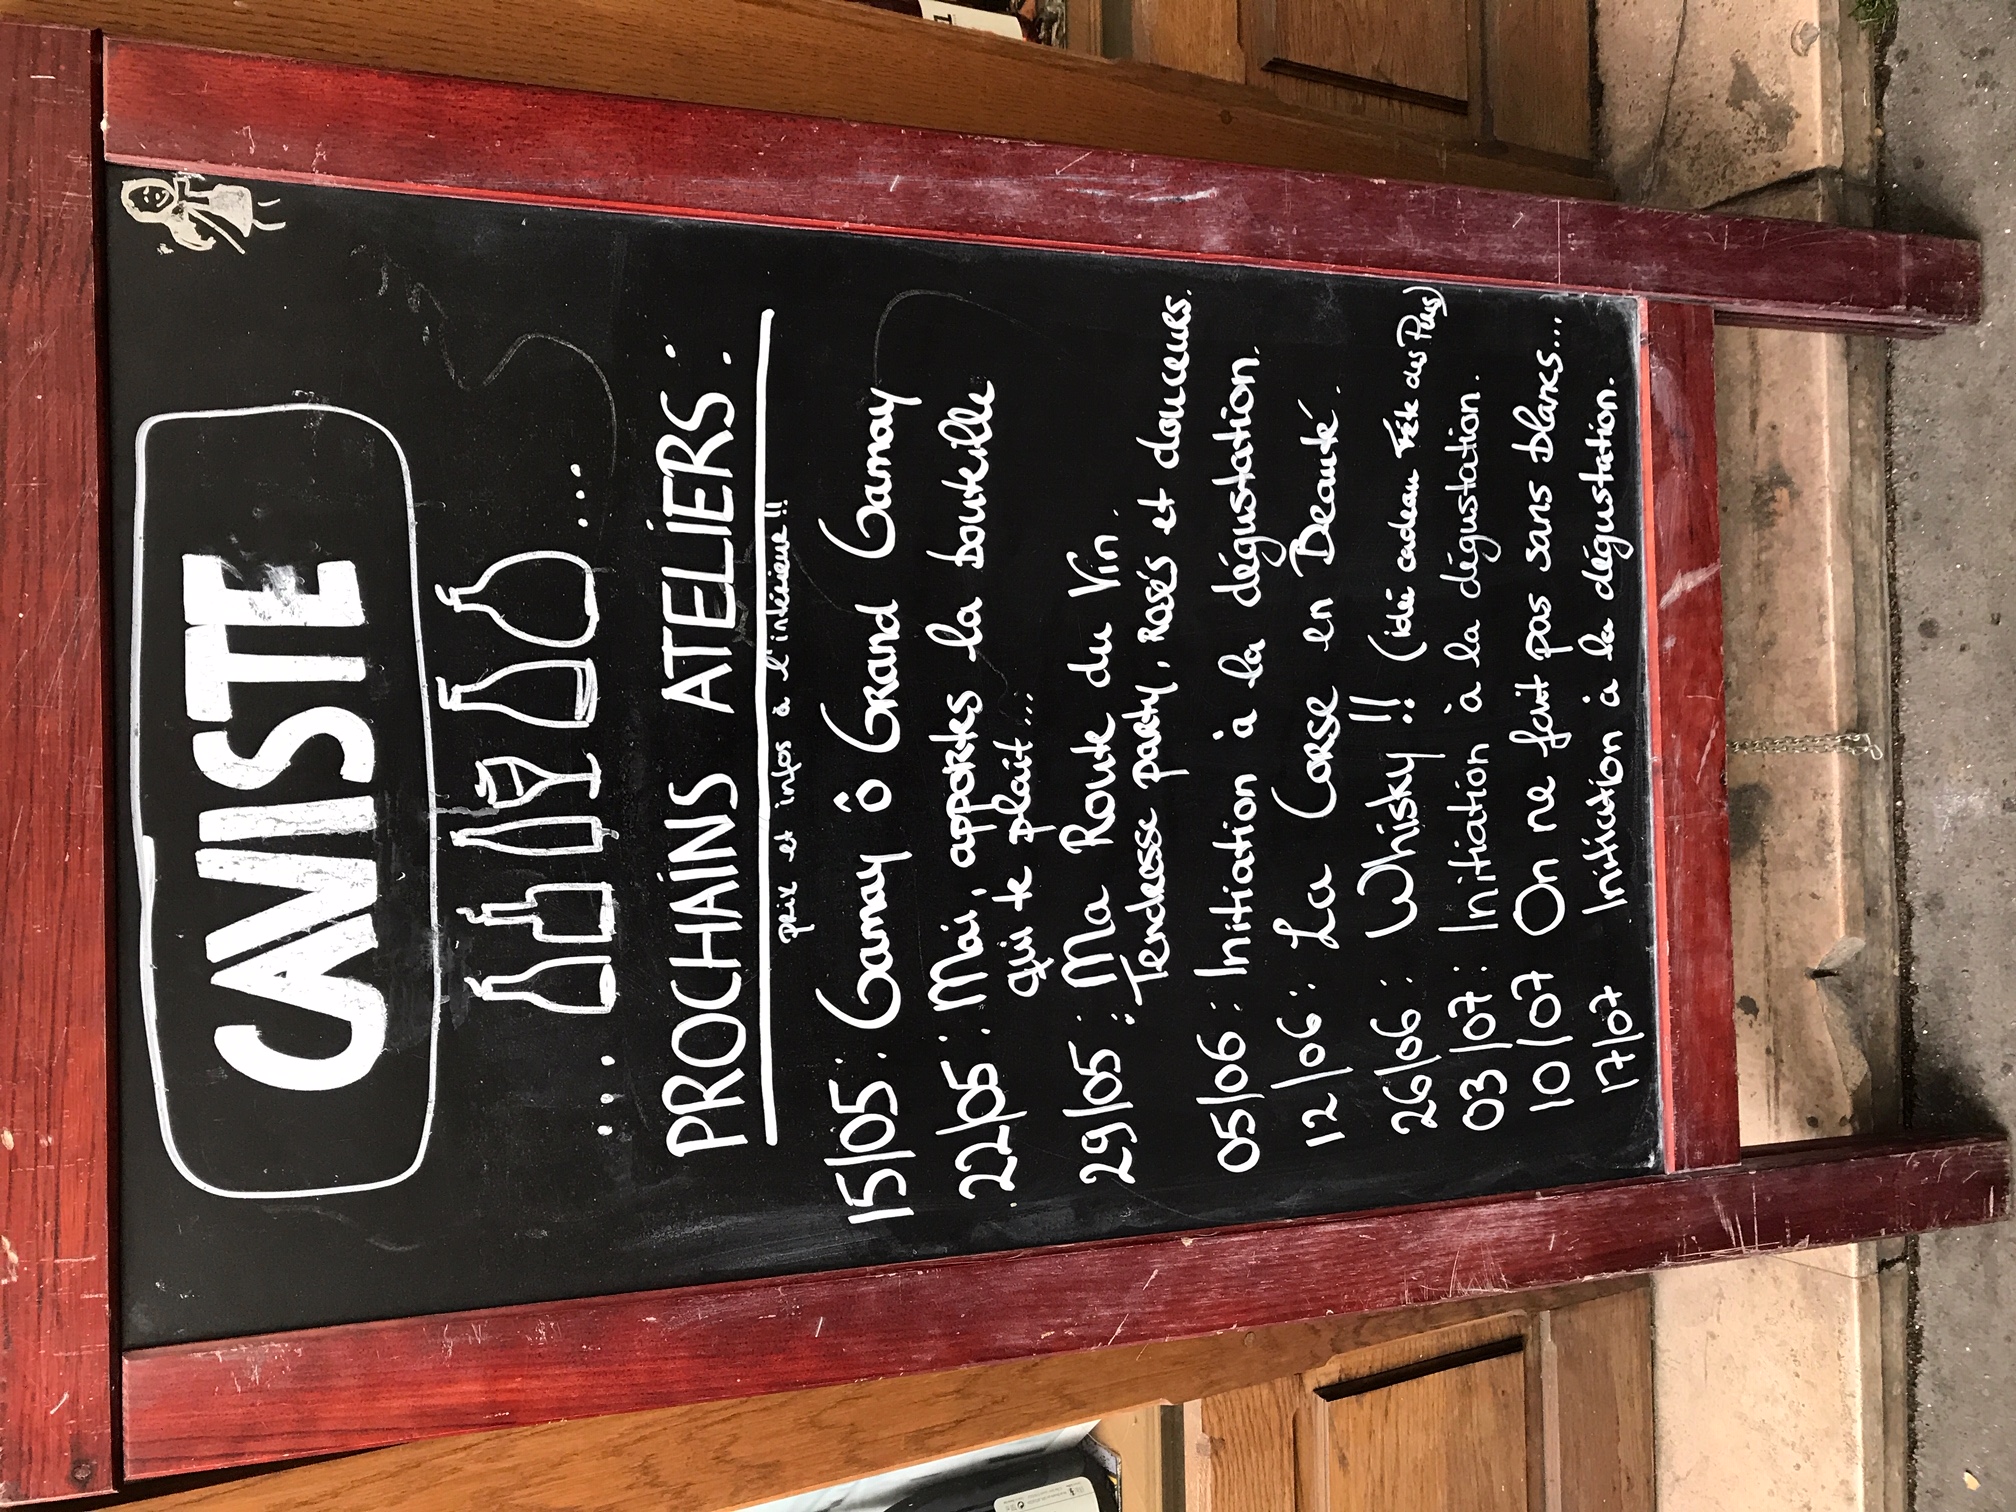 CAVISTE
PROCHAINS ATELIERS :
prix et infos à l'intérieur !!
15/05 : Gamay ô Grand Gamay
22/05 : Mai, apportes la bouteille
qui te plait...
29/05 : Ma Route du Vin.
Tendresse party, Rosés et douceurs.
05/06 : Initiation à la dégustation.
12/06 : La Corse en Beauté.
26/06 : Whisky !! (idé cadeau Fête des Pères)
03/07 : Initiation à la dégustation.
10/07 On ne fait pas sans blancs...
17/07 Initiation à la dégustation.